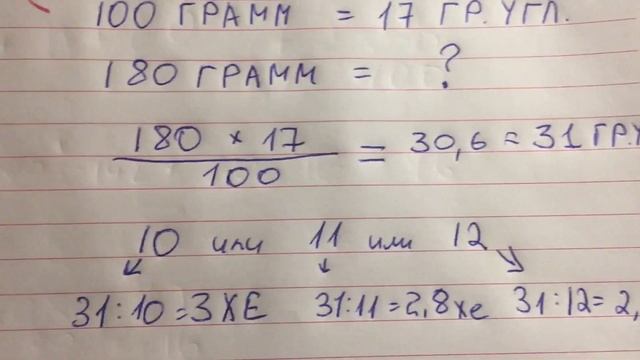 100 ГРАММ = 17 ГР. УГЛ.
180 ГРАММ = ?
180 × 17
100
= 30,6 ≈ 31 ГР.У
10 или 11 или 12
31:10=3 ХЕ 31:11=2,8 хе 31:12=2,